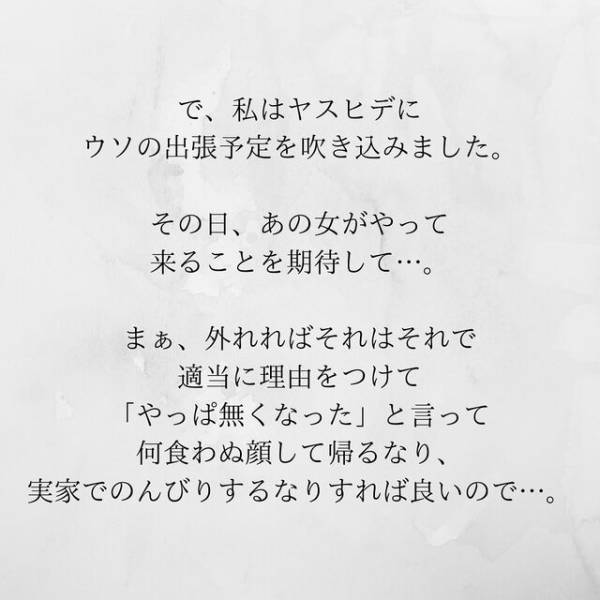 で、私はヤスヒデに
ウソの出張予定を吹き込みました。
その日、あの女がやって
来ることを期待して…。
まぁ、外れればそれはそれで
適当に理由をつけて
「やっぱ無くなった」と言って
何食わぬ顔して帰るなり、
実家でのんびりするなりすれば良いので…。